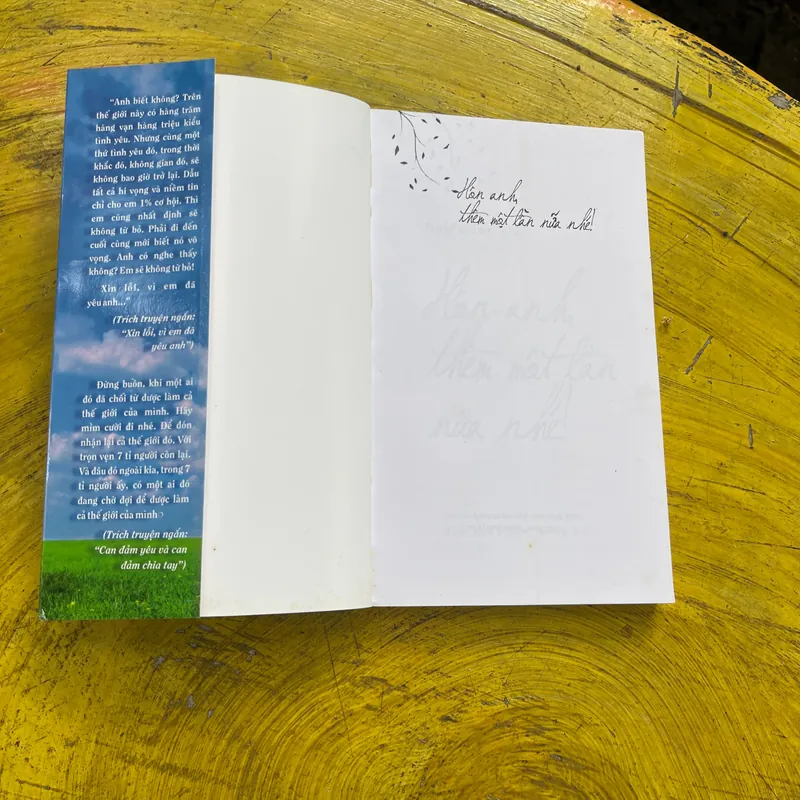 “Anh biết không? Trên
thế giới này có hàng trăm
hàng vạn hàng triệu kiểu
tình yêu. Nhưng cùng một
thứ tình yêu đó, trong thời
khắc đó, không gian đó, sẽ
không bao giờ trở lại. Dẫu
tất cả hi vọng và niềm tin
chỉ cho em 1% cơ hội. Thì
em cũng nhất định sẽ
không từ bỏ. Phải đi đến
cuối cùng mới biết nó vô
vọng. Anh có nghe thấy
không? Em sẽ không từ bỏ!
Xin lỗi, vì em đã
yêu anh...”
(Trích truyện ngắn:
“Xin lỗi, vì em đã
yêu anh”)
Đừng buồn, khi một ai
đó đã chối từ được làm cả
thế giới của mình. Hãy
mỉm cười đi nhé. Để đón
nhận lại cả thế giới đó. Với
trọn vẹn 7 tỉ người còn lại.
Và đâu đó ngoài kia, trong 7
tỉ người ấy, có một ai đó
đang chờ đợi để được làm
cả thế giới của mình
(Trích truyện ngắn:
“Can đảm yêu và can
đảm chia tay”)
Hôn anh,
thêm một lần nữa nhé!
Hôn anh,
thêm một lần
nữa nhé!